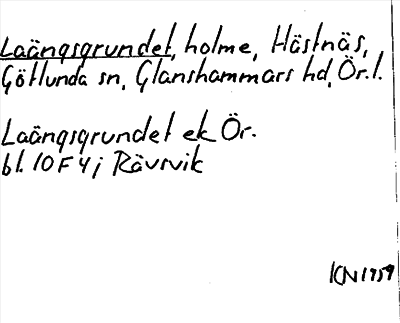 Laängsgrundet, holme, Hästnäs,
Götlunda sn, Glanshammars hd, Ör. l.
Laängsgrundet ek Ör.
bl. 10 F 4 j Rävsvik
KN 1959